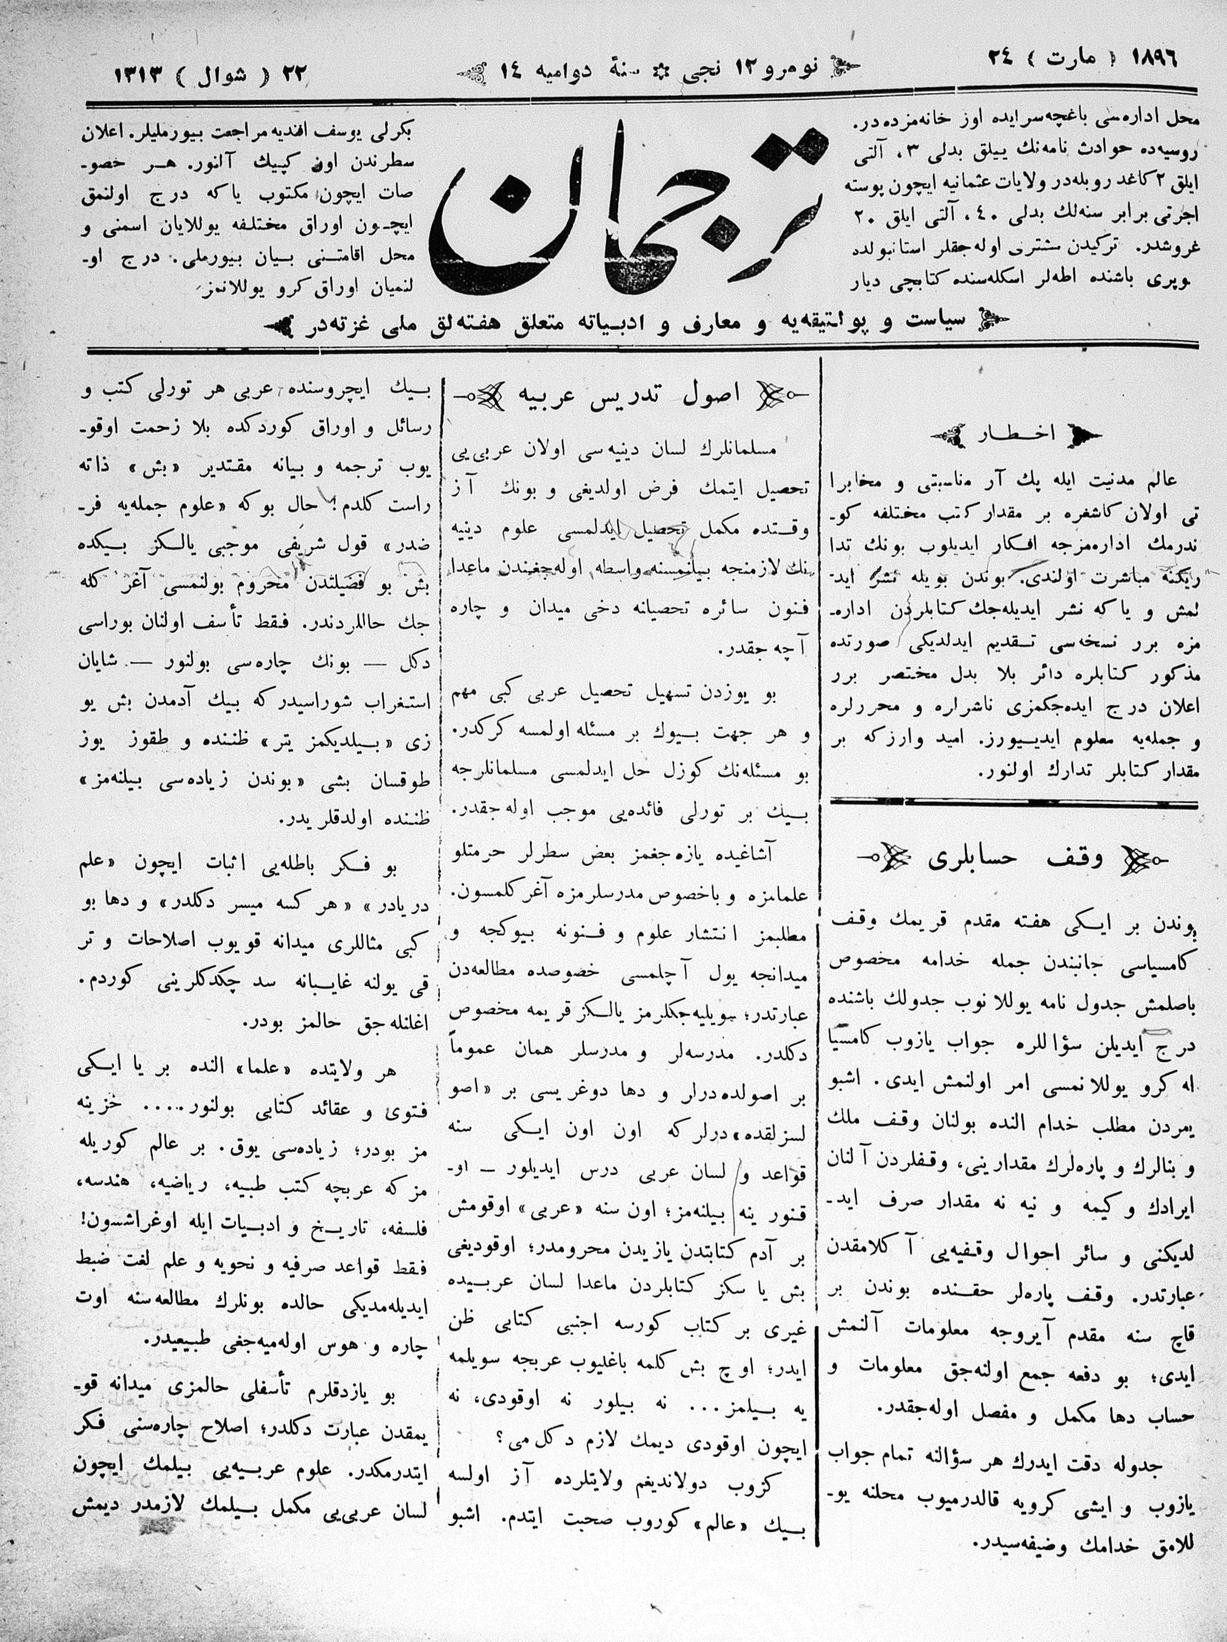 ١٨٩٦ ( مارت ) ٢٤
نومرو ١٢ نجی ✡ سنهٔ دوامیه ١٤
٢٢ ( شوال ) ١٣١٣
محل اداره‌سی باغچه‌سرایده اوز خانه‌مزده‌در.
روسیه‌ده حوادث نامه‌نك ییللق بدلی ٣، آلتی
ایلق ٢ كاغد روبله‌در ولایات عثمانیه ایچون پوسته
اجرتی برابر سنه‌لك بدلی ٤٠، آلتی ایلق ٢٠
غروشدر. تركیدن مشتری اوله‌جقلر استانبولده
وپری باشنده اطه‌لر اسكله‌سنده كتابچی دیار
ترجمان
بكرلی یوسف افندیه مراجعت بیورملیلر. اعلان
سطرندن اون كپیك آلنور. هر خصو-
صات ایچون مكتوب یاكه درج اولنمق
ایچون اوراق مختلفه یوللایان اسمنی و
محل اقامتنی بیان بیورملی. درج او-
لنمیان اوراق كرو یوللانمز.
سیاست و پولتیقه‌یه و معارف و ادبیاته متعلق هفته‌لق ملی غزته‌در
اخطار
عالم مدنیت ایله پك آز مناسبتی و مخابرا
تی اولان كاشغره بر مقدار كتب مختلفه كو-
ندرمك اداره‌مزجه افكار ایدیلوب بونك تدا
ركنه مباشرت اولندی. بوندن بویله نشر اید-
لمش و یاكه نشر ایدیله‌جك كتابلردن اداره-
مزه برر نسخه‌سی تقدیم ایدلدیكی صورتده
مذكور كتابلره دائر بلا بدل مختصر برر
اعلان درج ایده‌جكمزی ناشراره و محررلره
و جمله‌یه معلوم ایدییورز. امید وارزكه بر
مقدار كتابلر تدارك اولنور.
وقف حسابلری
بوندن بر ایكی هفته مقدم قریمك وقف
كامسیاسی جانبندن جمله خدامه مخصوص
باصلمش جدول نامه یوللانوب جدولك باشنده
درج ایدیلن سؤاللره جواب یازوب كامسیا
له كرو یوللانمسی امر اولنمش ایدی. اشبو
یمردن مطلب خدام النده بولنان وقف ملك
و بنالرك و پاره‌لرك مقدارینی، وقفلردن آلنان
ایرادك و كیمه و نیه نه مقدار صرف اید-
لدیكنی و سائر احوال وقفیه‌یی آكلامقدن
عبارتدر. وقف پاره‌لر حقنده بوندن بر
قاچ سنه مقدم آیروجه معلومات آلنمش
ایدی؛ بو دفعه جمع اولنه‌جق معلومات و
حساب دها مكمل و مفصل اوله‌جقدر.
جدوله دقت ایدرك هر سؤالنه تمام جواب
یازوب و ایشی كرویه قالدرمیوب محلنه یو-
للامق خدامك وضیفه‌سیدر.
اصول تدریس عربیه
مسلمانلرك لسان دینیه‌سی اولان عربی‌یی
تحصیل ایتمك فرض اولدیغی و بونك آز
وقتده مكمل تحصیل ایدلمسی علوم دینیه
نك لازمنجه بیانمسنه واسطه اوله‌جغندن ماعدا
فنون سائره تحصیانه دخی میدان و چاره
آچه‌جقدر.
بو یوزدن تسهیل تحصیل عربی كبی مهم
و هر جهت بیوك بر مسئله اولمسه كركدر.
بو مسئله‌نك كوزل حل ایدلمسی مسلمانلرجه
بیك بر تورلی فائده‌یی موجب اوله‌جقدر.
آشاغیده یازه‌جغمز بعض سطرلر حرمتلو
علمامزه و باخصوص مدرسلرمزه آغر كلمسون.
مطلبمز انتشار علوم و فنونه بیوكجه و
میدانجه یول آچلمسی خصوصده مطالعه‌دن
عبارتدر؛ سویلیه‌جكلرمز یالكز قریمه مخصوص
دكلدر. مدرسه‌لر و مدرسلر همان عموماً
بر اصولده‌درلر و دها دوغریسی بر «اصو
لسزلقده» درلركه اون اون ایكی سنه
قواعد و لسان عربی درس ایدیلور – او-
قنور ینه بیلنه‌مز؛ اون سنه «عربی» اوقومش
بر آدم كتابتدن یازیدن محرومدر؛ اوقودیغی
بش یا سكز كتابلردن ماعدا لسان عربیده
غیری بر كتاب كورسه اجنبی كتابی ظن
ایدر؛ اوچ بش كلمه باغلیوب عربجه سویلمه
یه بیلمز... نه بیلور نه اوقودی، نه
ایچون اوقودی دیمك لازم دكل‌می؟
كزوب دولاندیغم ولایتلرده آز اولسه
بیك «عالم» كوروب صحبت ایتدم. اشبو
بیك ایچروسنده عربی هر تورلی كتب و
رسائل و اوراق كوردكده بلا زحمت اوقو-
یوب ترجمه و بیانه مقتدیر «بش» ذاته
راست كلدم! حال بوكه «علوم جمله‌یه فر-
ضدر» قول شریفی موجبی یالكز بیكده
بش بو فضیلتدن محروم بولنمسی آغر كله
جك حاللردندر. فقط تأسف اولنان بوراسی
دكل — بونك چاره‌سی بولنور — شایان
استغراب شوراسیدركه بیك آدمدن بش یو
زی «بیلدیكمز یتر» ظننده و طقوز یوز
طوقسان بشی «بوندن زیاده‌سی بیلنه‌مز»
ظننده اولدقلریدر.
بو فكر باطله‌یی اثبات ایچون «علم
دریادر» «هر كسه میسر دكلدر» و دها بو
كبی مثاللری میدانه قویوب اصلاحات و تر
قی یولنه غایبانه سد چكدكلرینی كوردم.
اغلنله‌جق حالمز بودر.
هر ولایتده «علما» النده بر یا ایكی
فتوئ و عقائد كتابی بولنور.... خزینه
مز بودر؛ زیاده‌سی یوق. بر عالم كوریله
مزكه عربچه كتب طبیه، ریاضیه، هندسه،
فلسفه، تاریخ و ادبیات ایله اوغراشسون!
فقط قواعد صرفیه و نحویه و علم لغت ضبط
ایدیله‌مدیكی حالده بونلرك مطالعه‌سنه اوت
چاره و هوس اوله‌میه‌جغی طبیعیدر.
بو یازدقلرم تأسفلی حالمزی میدانه قو-
یمقدن عبارت دكلدر؛ اصلاح چاره‌سنی فكر
ایتدرمكدر. علوم عربیه‌یی بیلمك ایچون
لسان عربی‌یی مكمل بیلمك لازمدر دیمش